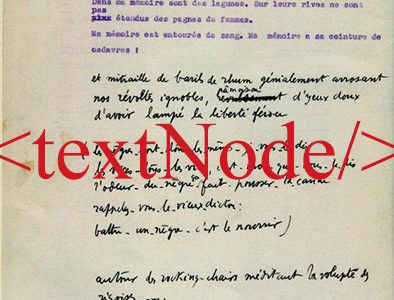 Dans ma mémoire sont des lagunes. Sur leurs rives ne sont
pas
étendus des pagnes de femmes.
Ma mémoire est entourée de sang. Ma mémoire a sa ceinture de
cadavres !
et mitraille de barils de rhum génialement arrosant
nos révoltes ignobles, pâmoison d'yeux doux
d'avoir lampé la liberté féroce
<textNode/>
les nègres-sont-tous-les-mêmes, vous-dis
les vices-tous-les-vices, c'est-moi-qui-vous-le-dis
l'odeur-du-nègre, ça-fait-pousser-la-canne
rappelez-vous-le-vieux-dicton:
battre-un-nègre-c'est le nourrir)
autour des rocking-chairs méditant la volupté des
rigoises